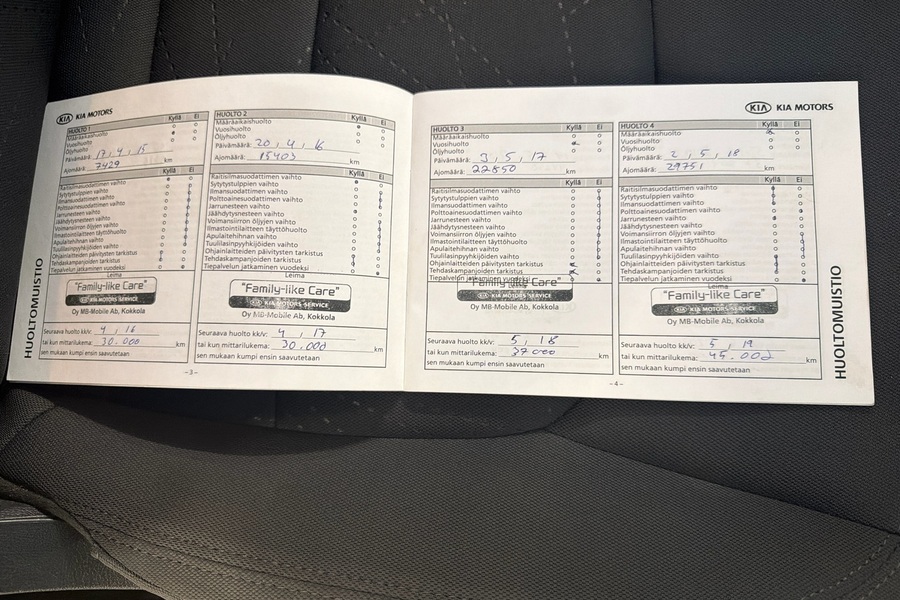 HUOLTOMUISTIO
KIA KIA MOTORS
HUOLTO 1 Kyllä Ei
Määräaikaishuolto
Vuosihuolto
Öljyhuolto
Päivämäärä: 17, 4, 15
Ajomäärä: 7429 km
Kyllä Ei
Raitisilmasuodattimen vaihto
Sytytystulppien vaihto
Ilmansuodattimen vaihto
Polttoainesuodattimen vaihto
Jarrunesteen vaihto
Jäähdytysnesteen vaihto
Voimansiirron öljyjen vaihto
Ilmastointilaitteen täyttöhuolto
Apulaitehihnan vaihto
Tuulilasinpyyhkijöiden vaihto
Ohjainlaitteiden päivitysten tarkistus
Tehdaskampanjoiden tarkistus
Tiepalvelun jatkaminen vuodeksi
Leima
"Family-like Care"
KIA MOTORS SERVICE
Oy MB-Mobile Ab, Kokkola
Seuraava huolto kk/v: 4, 16
tai kun mittarilukema: 30.000 km
sen mukaan kumpi ensin saavutetaan
HUOLTO 2 Kyllä Ei
Määräaikaishuolto
Vuosihuolto
Öljyhuolto
Päivämäärä: 20, 4, 16
Ajomäärä: 15403 km
Kyllä Ei
Raitisilmasuodattimen vaihto
Sytytystulppien vaihto
Ilmansuodattimen vaihto
Polttoainesuodattimen vaihto
Jarrunesteen vaihto
Jäähdytysnesteen vaihto
Voimansiirron öljyjen vaihto
Ilmastointilaitteen täyttöhuolto
Apulaitehihnan vaihto
Tuulilasinpyyhkijöiden vaihto
Ohjainlaitteiden päivitysten tarkistus
Tehdaskampanjoiden tarkistus
Tiepalvelun jatkaminen vuodeksi
Leima
"Family-like Care"
KIA MOTORS SERVICE
Oy MB-Mobile Ab, Kokkola
Seuraava huolto kk/v: 4, 17
tai kun mittarilukema: 30.000 km
sen mukaan kumpi ensin saavutetaan
-3-
KIA KIA MOTORS
HUOLTO 3 Kyllä Ei
Määräaikaishuolto
Vuosihuolto
Öljyhuolto
Päivämäärä: 3, 5, 17
Ajomäärä: 22850 km
Kyllä Ei
Raitisilmasuodattimen vaihto
Sytytystulppien vaihto
Ilmansuodattimen vaihto
Polttoainesuodattimen vaihto
Jarrunesteen vaihto
Jäähdytysnesteen vaihto
Voimansiirron öljyjen vaihto
Ilmastointilaitteen täyttöhuolto
Apulaitehihnan vaihto
Tuulilasinpyyhkijöiden vaihto
Ohjainlaitteiden päivitysten tarkistus
Tehdaskampanjoiden tarkistus
Tiepalvelun jatkaminen vuodeksi
Leima
"Family-like Care"
KIA MOTORS SERVICE
Oy MB-Mobile Ab, Kokkola
Seuraava huolto kk/v: 5, 18
tai kun mittarilukema: 37000 km
sen mukaan kumpi ensin saavutetaan
HUOLTO 4 Kyllä Ei
Määräaikaishuolto
Vuosihuolto
Öljyhuolto
Päivämäärä: 2, 5, 18
Ajomäärä: 29751 km
Kyllä Ei
Raitisilmasuodattimen vaihto
Sytytystulppien vaihto
Ilmansuodattimen vaihto
Polttoainesuodattimen vaihto
Jarrunesteen vaihto
Jäähdytysnesteen vaihto
Voimansiirron öljyjen vaihto
Ilmastointilaitteen täyttöhuolto
Apulaitehihnan vaihto
Tuulilasinpyyhkijöiden vaihto
Ohjainlaitteiden päivitysten tarkistus
Tehdaskampanjoiden tarkistus
Tiepalvelun jatkaminen vuodeksi
Leima
"Family-like Care"
KIA MOTORS SERVICE
Oy MB-Mobile Ab, Kokkola
Seuraava huolto kk/v: 5, 19
tai kun mittarilukema: 45.000 km
sen mukaan kumpi ensin saavutetaan
-4-
HUOLTOMUISTIO